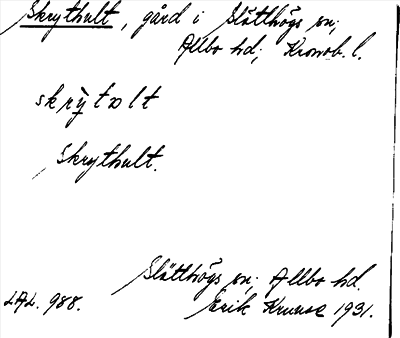 Skrythult, gård i Slätthögs sn;
Allbo hd; Kronob. l.
skrỳtɷlt
Skrythult.
Slätthögs sn; Allbo hd.
LAL. 988. Erik Kruuse 1931.